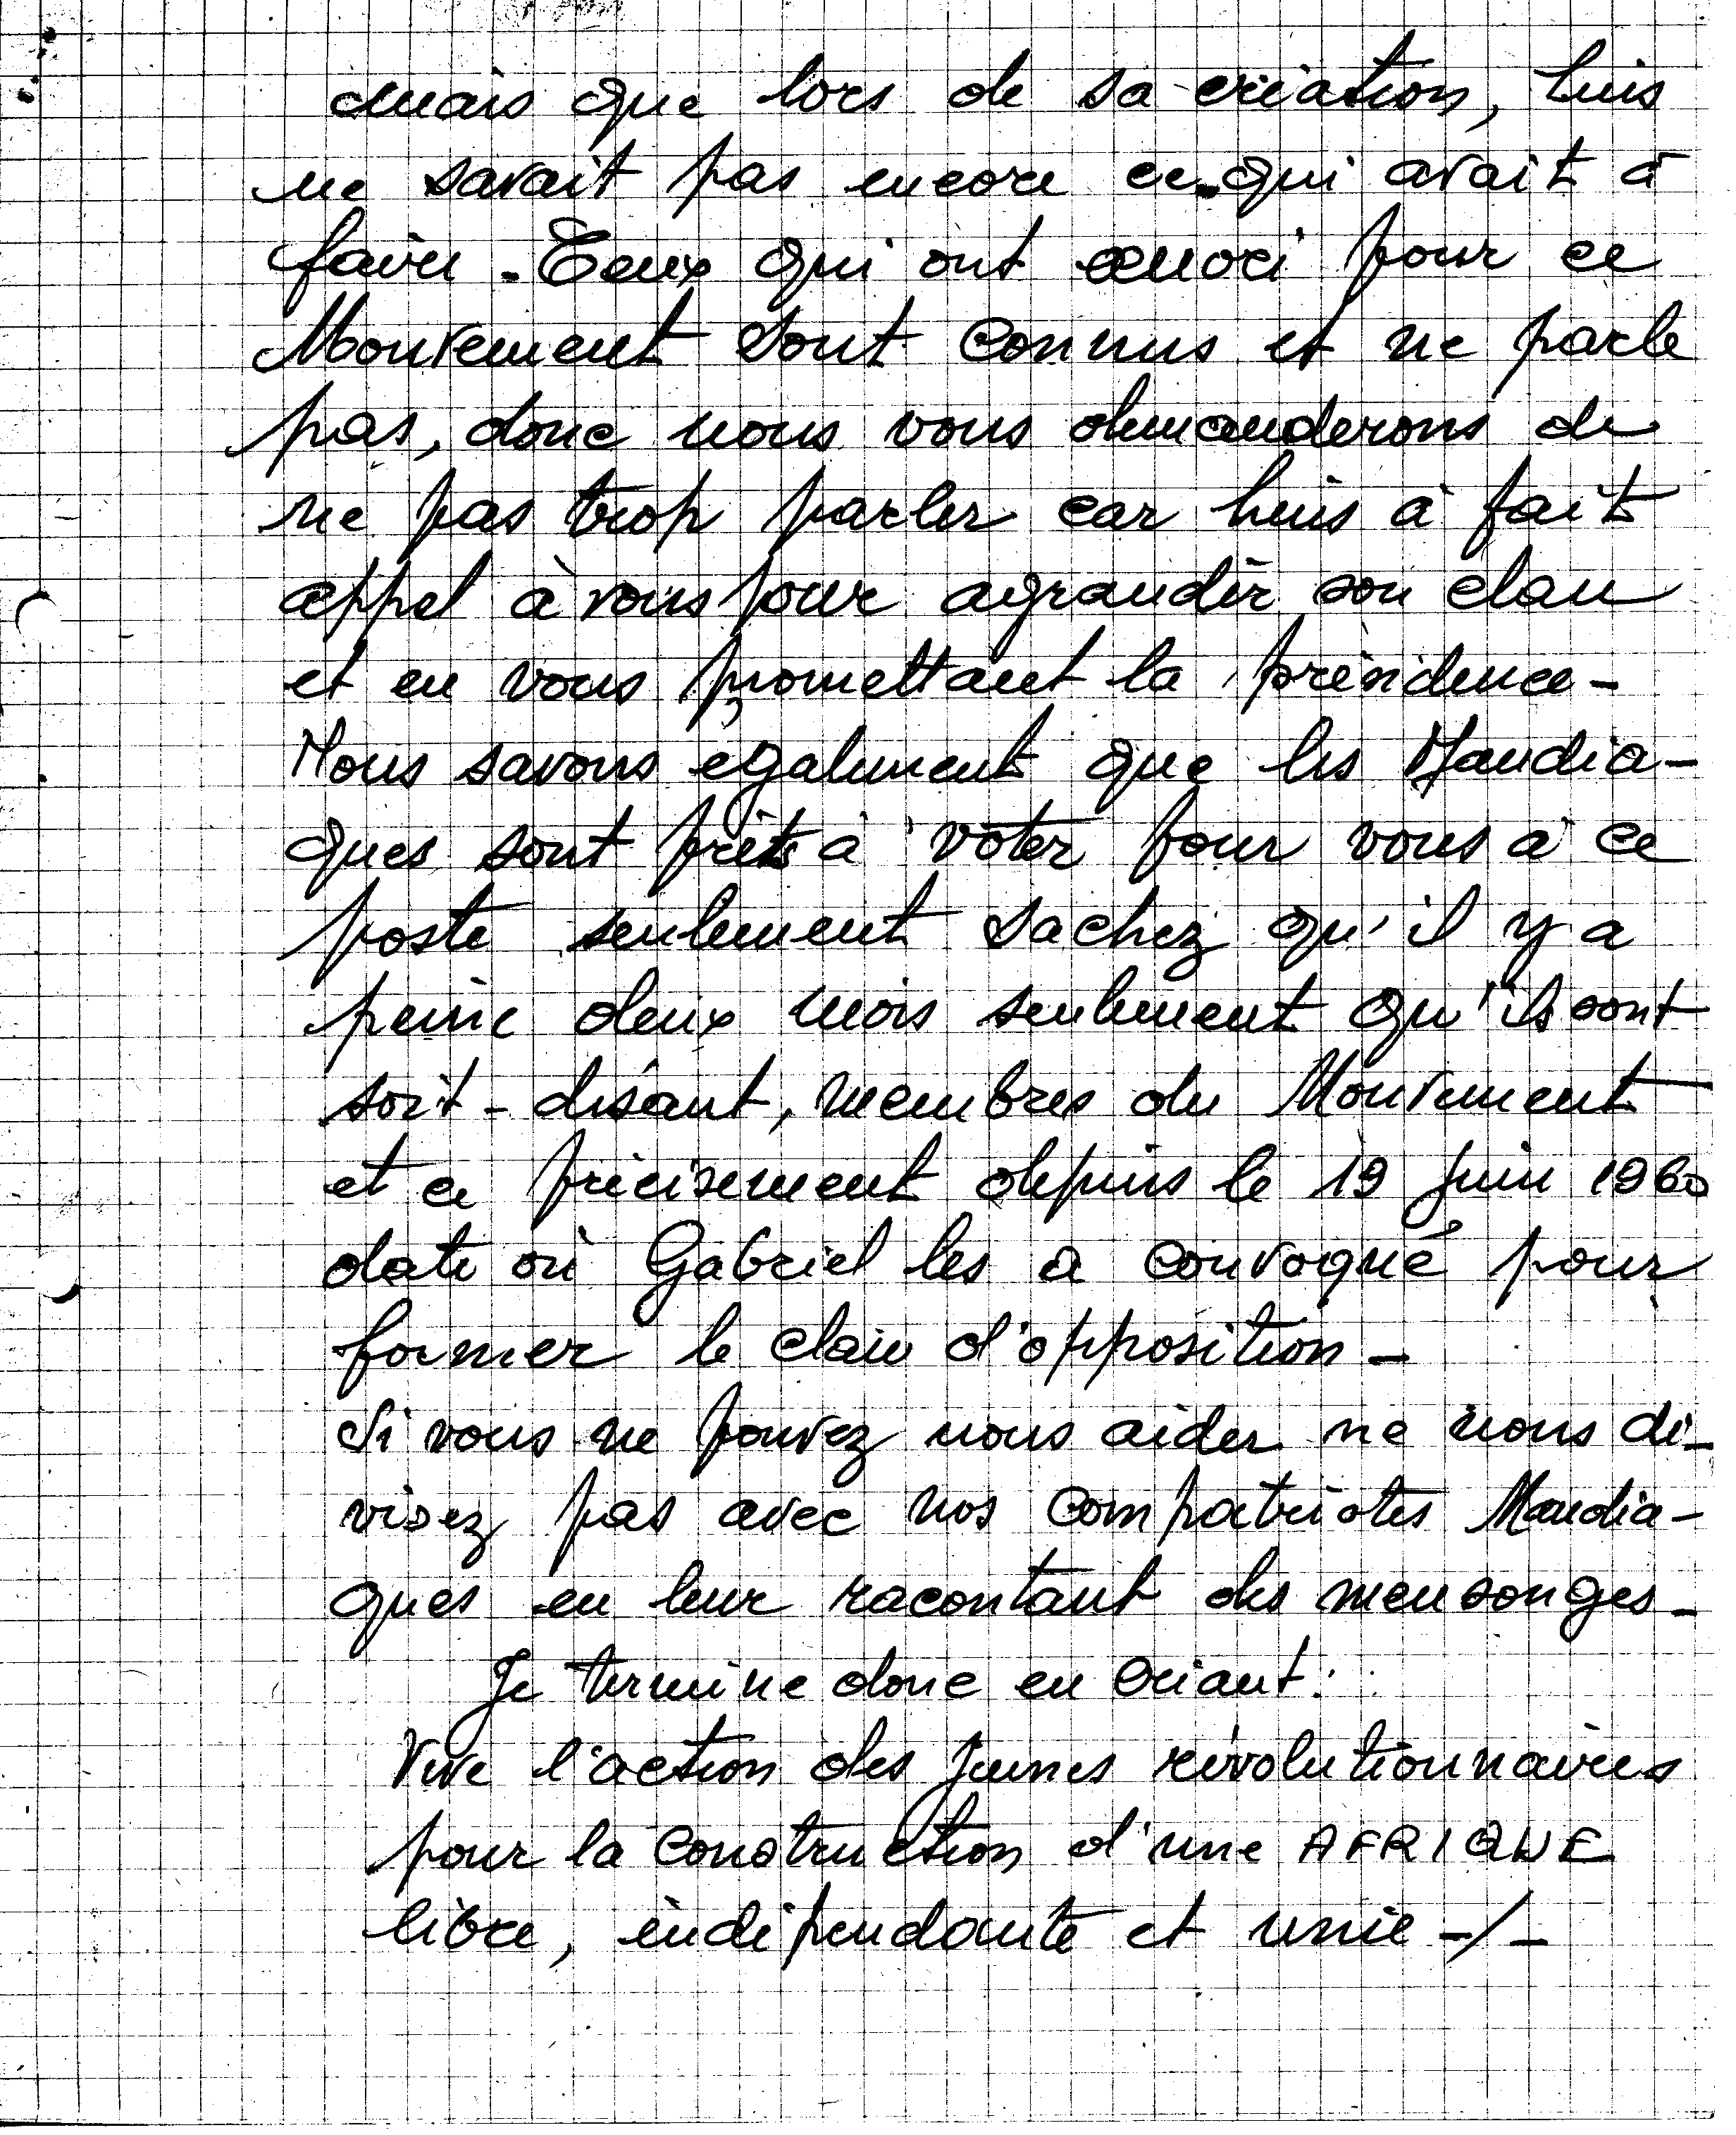 mais que lors de sa création, Luis
ne savait pas encore ce qui avait à
faire. Ceux qui ont œuvré pour ce
Mouvement sont connus et ne parle
pas, donc nous vous demanderons de
ne pas trop parler car Luis à fait
appel à vous pour agrandir son clan
et en vous promettant la présidence -
Nous savons également que les Mandia-
ques sont prêts à voter pour vous à ce
poste seulement sachez qu'il y a
peine deux mois seulement qu'ils sont
soit-disant, membres du Mouvement
et ce précisement depuis le 19 juin 1960
date où Gabriel les a convoqué pour
former le clan d'opposition -
Si vous ne pouvez nous aider ne nous di-
visez pas avec nos compatriotes Mandia-
ques en leur racontant des mensonges -
Je termine donc en criant :
Vive l'action des Jeunes révolutionnaires
pour la construction d'une AFRIQUE
libre, indépendante et unie -/-